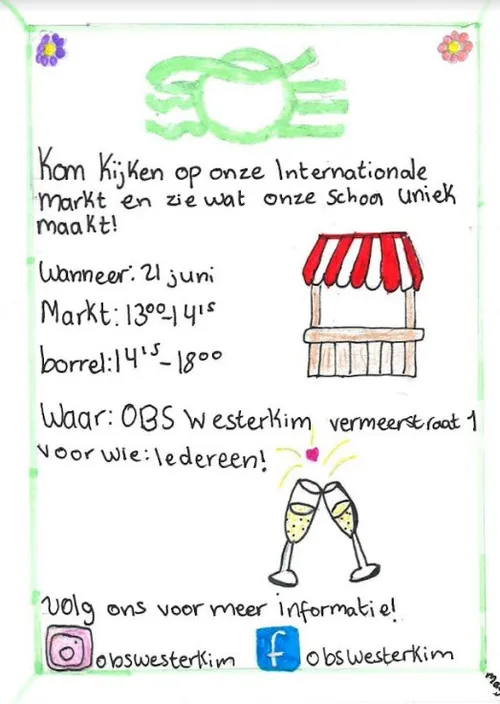 Kom Kijken op onze Internationale
markt en zie wat onze school uniek
maakt!
Wanneer: 21 juni
Markt: 13⁰⁰-14¹⁵
borrel: 14¹⁵-18⁰⁰
Waar: OBS Westerkim vermeerstraat 1
voor wie: Iedereen!
Volg ons voor meer informatie!
obswesterkim f obswesterkim